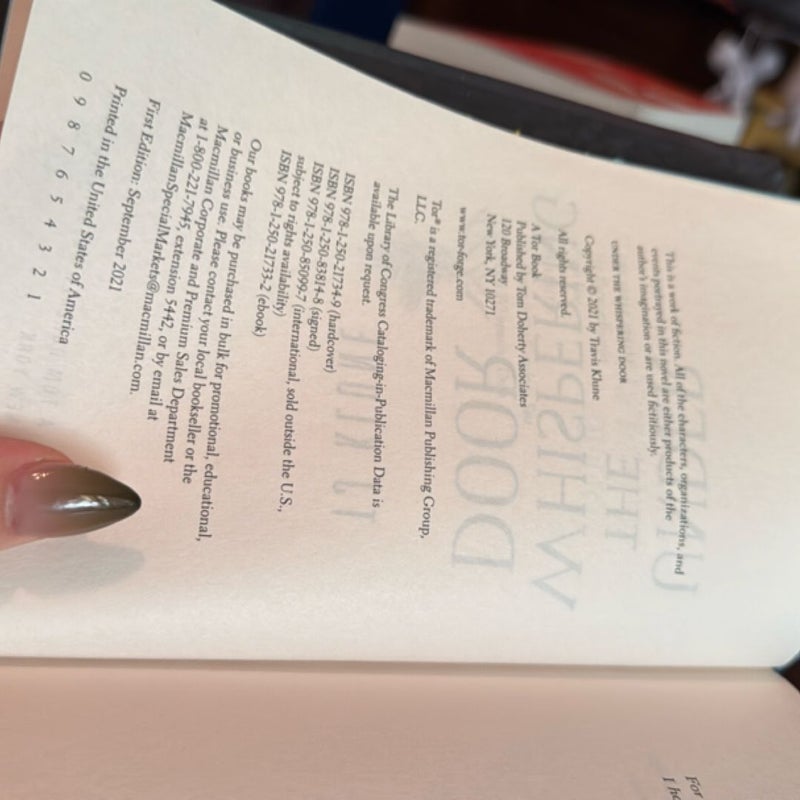 This is a work of fiction. All of the characters, organizations, and
events portrayed in this novel are either products of the
author's imagination or are used fictitiously.
UNDER THE WHISPERING DOOR
Copyright © 2021 by Travis Klune
All rights reserved.
A Tor Book
Published by Tom Doherty Associates
120 Broadway
New York, NY 10271
www.tor-forge.com
Tor® is a registered trademark of Macmillan Publishing Group,
LLC.
The Library of Congress Cataloging-in-Publication Data is
available upon request.
ISBN 978-1-250-21734-9 (hardcover)
ISBN 978-1-250-83814-8 (signed)
ISBN 978-1-250-85099-7 (international, sold outside the U.S.,
subject to rights availability)
ISBN 978-1-250-21733-2 (ebook)
Our books may be purchased in bulk for promotional, educational,
or business use. Please contact your local bookseller or the
Macmillan Corporate and Premium Sales Department
at 1-800-221-7945, extension 5442, or by email at
MacmillanSpecialMarkets@macmillan.com.
First Edition: September 2021
Printed in the United States of America
0 9 8 7 6 5 4 3 2 1
For
I